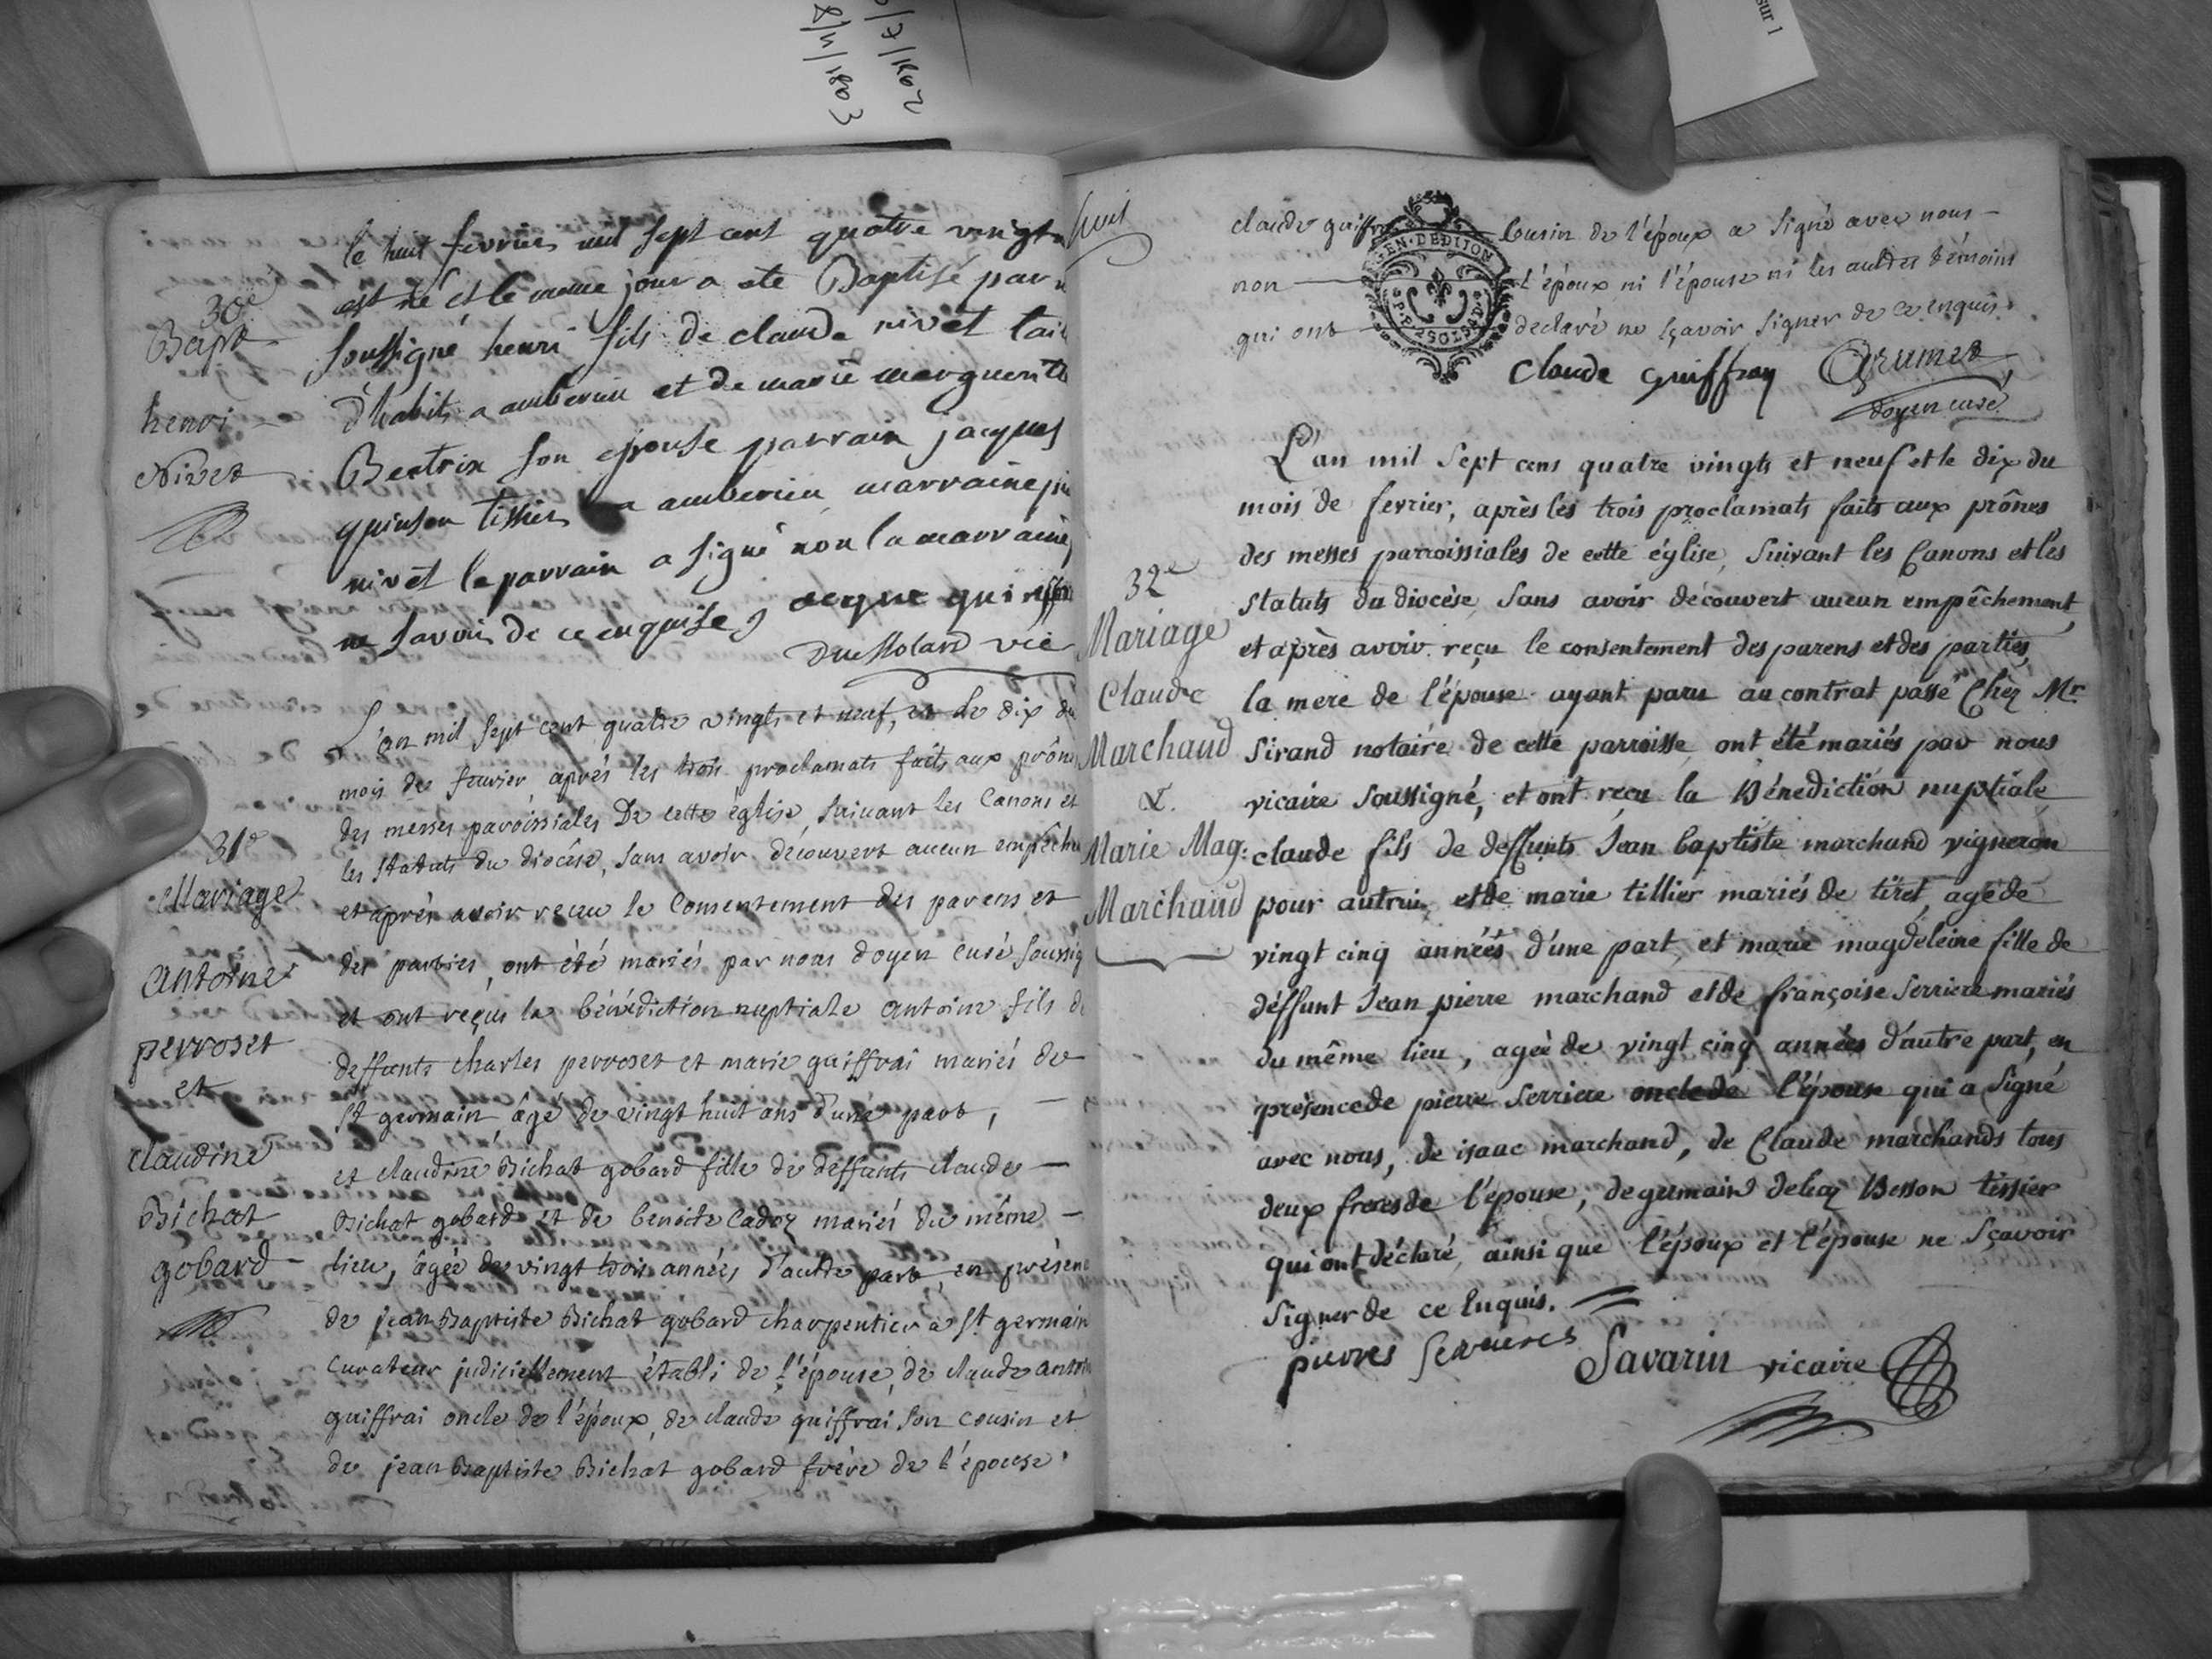 8/11/1803
/7/1802
sur 1
30e
Bapt
henri
Nivet
le huit fevrier mil sept cent quatre vingt
est né et le meme jour a ete Baptisé par
soussigné henri fils de claude nivet tail
d'habits a amberieu et de marie marguerite
Beatrix son epouse parrain jacques
quinson tissier a amberieu marraine
nivet le parrain a signé non la marraine
ne savoir de ce enquise, acque quinson
Dumolard vic
31e
Mariage
Antoine
perroset
et
claudine
Bichat
gobard
L'an mil sept cent quatre vingts et neuf, et le dix du
mois de fevrier, aprés les trois proclamats faits aux prône
des messes paroissiales De cette église, suivant les Canons et
les statuts du diocèse, sans avoir découvert aucun empêche
et aprés avoir reçu le Consentement des parens et
des parties, ont été mariés par nous doyen curé soussig
et ont reçus la bénédiction nuptiale antoine fils de
deffunts charles perroset et marie guiffrai mariés de
st germain, âgé de vingt huit ans d'une part,
et claudine Bichat gobard fille de deffunts claude
Bichat gobard et de benoite Cadoz mariés du même
lieu, âgée de vingt trois années d'autre part, en présen
de jean Baptiste Bichat gobard charpentier à st germain
Curateur judiciellement établi de l'épouse, de claude antoin
guiffrai oncle de l'époux, de claude guiffrai son cousin et
de jean Baptiste Bichat gobard frère de l'épouse
claude guiffrai Cousin de l'époux a signé avec nous
non l'époux ni l'épouse ni les autres témoins
qui ont declaré ne sçavoir signer de ce enquis.
GEN. DE DIJON
Claude guiffray Grumet
doyen curé
32e
Mariage
Claude
Marchand
&.
Marie Mag:
Marchand
L'an mil sept cens quatre vingts et neuf et le dix du
mois de fevrier, après les trois proclamats faits aux prônes
des messes parroissiales de cette église, suivant les Canons et les
statuts du diocèse, sans avoir découvert aucun empêchement,
et après avoir reçu le consentement des parens et des parties,
la mere de l'épouse ayant paru au contrat passé Chez Mr
sirand notaire de cette parroisse, ont été mariés par nous
vicaire soussigné, et ont reçu la Bénediction nuptiale
claude fils de deffunts Jean baptiste marchand vigneron
pour autrui, et de marie tillier mariés de tiret, agé de
vingt cinq années d'une part, et marie magdeleine fille de
déffunt Jean pierre marchand et de françoise serriere mariés
du même lieu, agée de vingt cinq années d'autre part, en
présence de pierre serriere oncle de l'épouse qui a signé
avec nous, de isaac marchand, de Claude marchands tous
deux freres de l'epouse, de gumain Besson tissier
qui ont déclaré, ainsi que l'époux et l'épouse ne sçavoir
signer de ce Enquis.
pierres serrieres Savarin vicaire